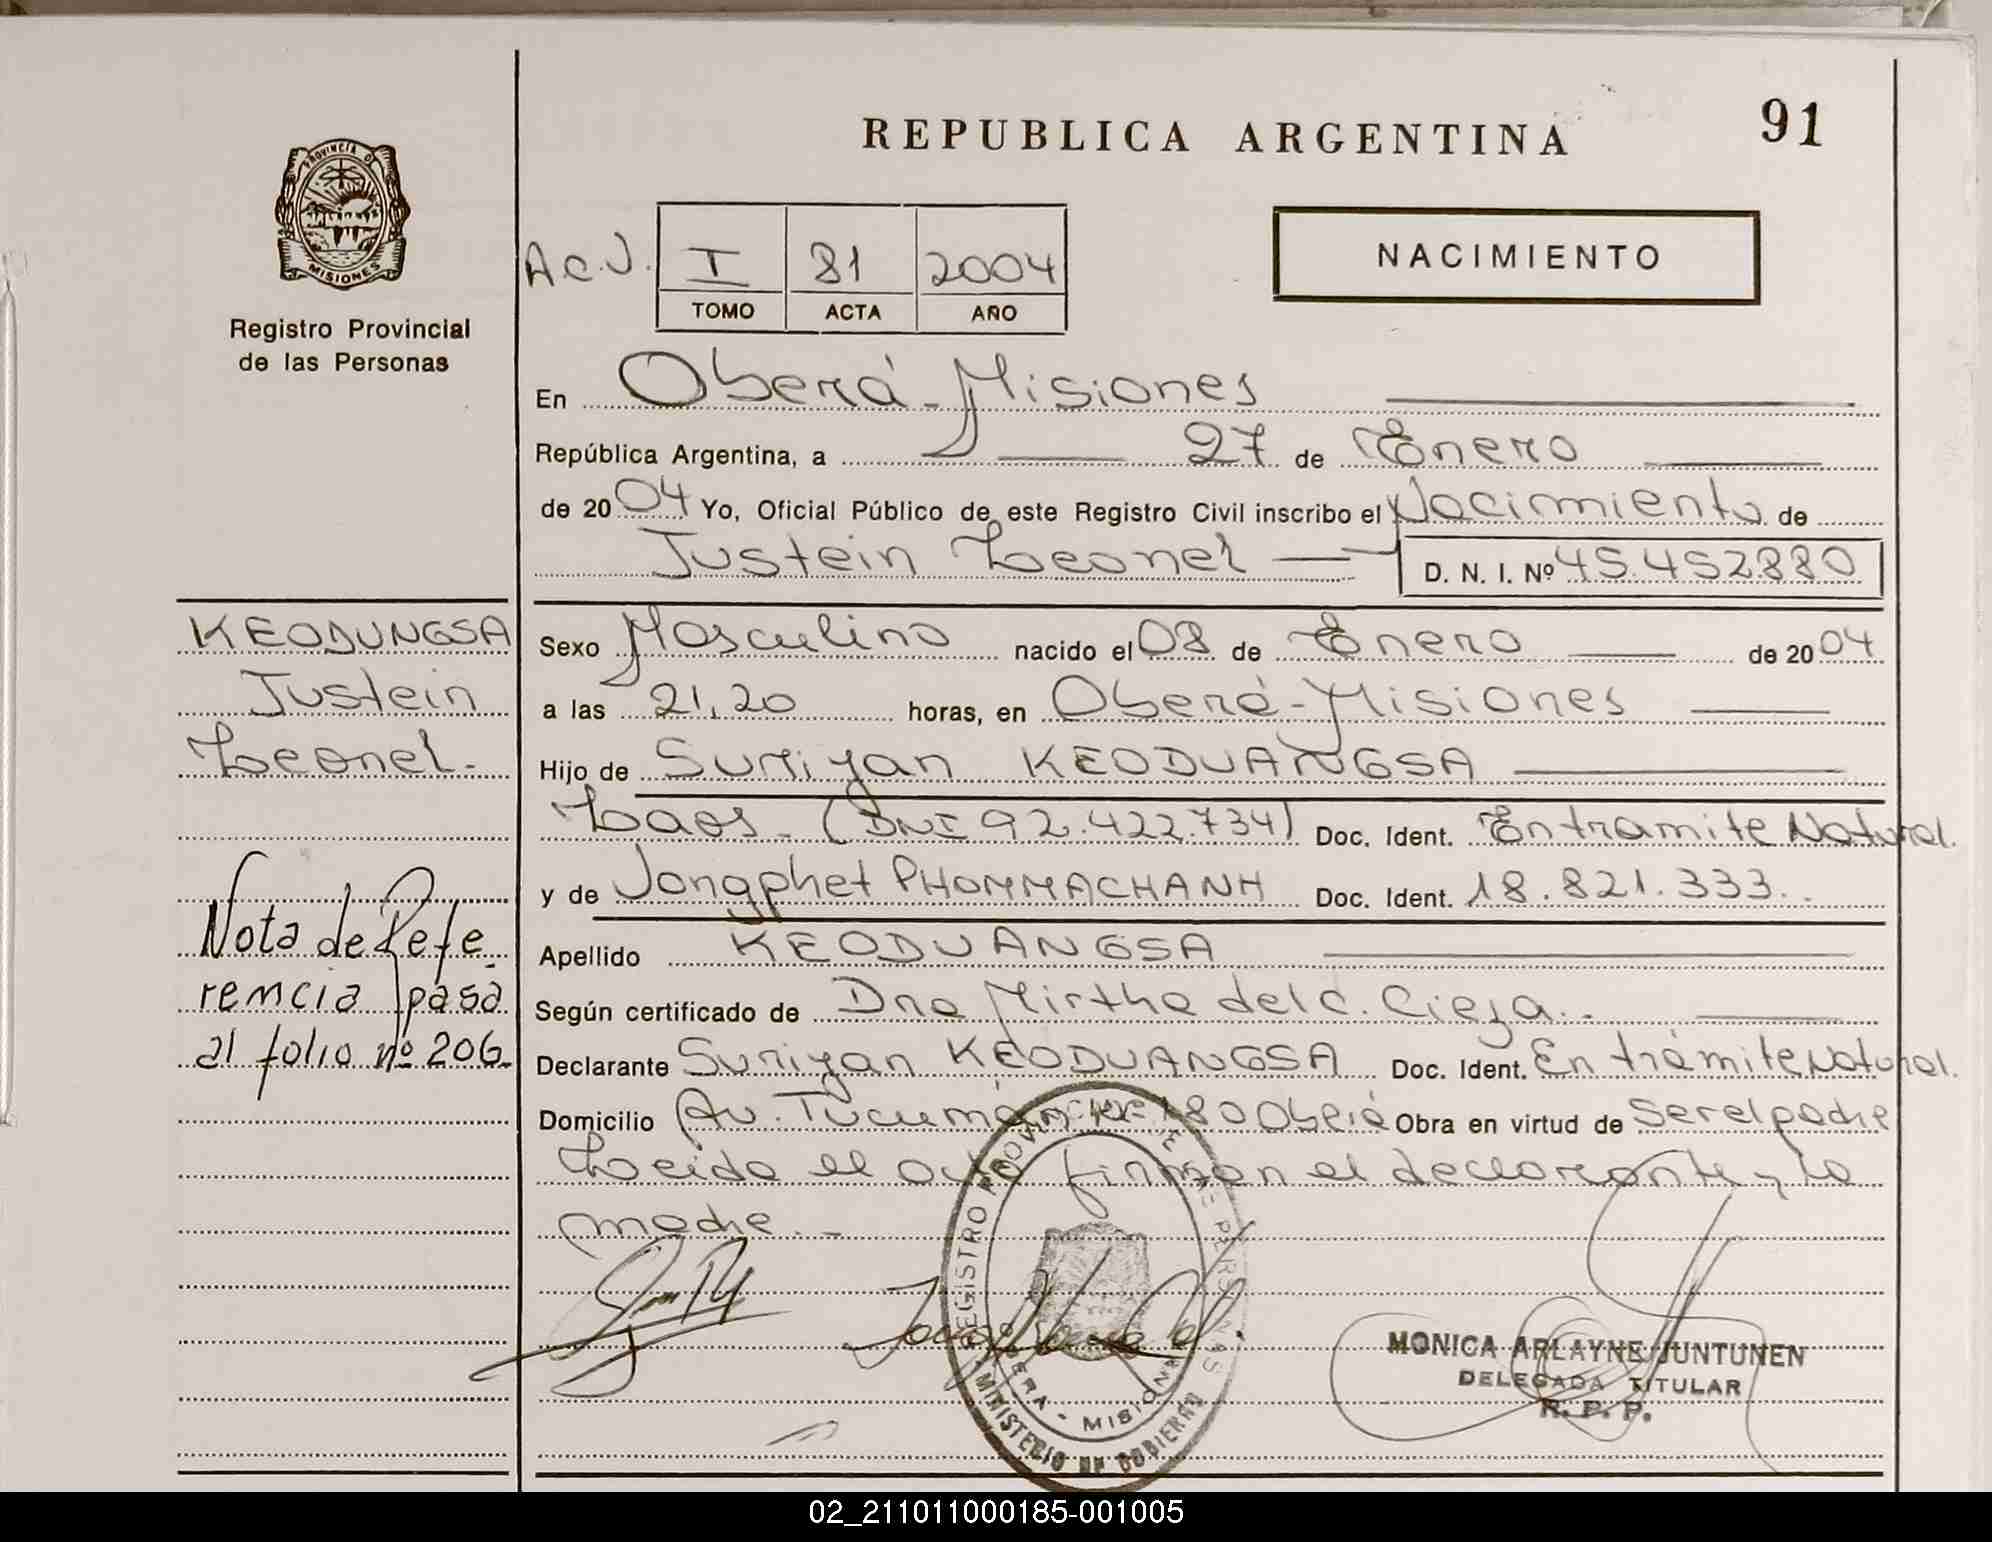 REPUBLICA ARGENTINA
91
PROVINCIA DE
MISIONES
Registro Provincial
de las Personas
A.C.J. I 81 2004
TOMO ACTA AÑO
NACIMIENTO
En Oberá - Misiones
República Argentina, a 27 de Enero
de 2004 Yo, Oficial Público de este Registro Civil inscribo el Nacimiento de
Justein Leonel D. N. I. Nº 45.452880
KEODUNGSA
Justein
Leonel.
Nota de Refe
rencia pasa
al folio nº 206.
Sexo Masculino nacido el 08 de Enero de 2004
a las 21,20 horas, en Oberá - Misiones
Hijo de Suriyan KEODUANGSA
Laos - (DNI 92.422.734) Doc. Ident. En tramite Natural.
y de Jongphet PHOMMACHANH Doc. Ident. 18.821.333.
Apellido KEODUANGSA
Según certificado de Dra Mirtha del C. Cieza.
Declarante Suriyan KEODUANGSA Doc. Ident. En trámite Natural.
Domicilio Av. Tucumán 1800 Oberá Obra en virtud de Ser el padre
Leida el acta firman el declarante y la
madre. -
REGISTRO PROVINCIAL DE LAS PERSONAS
OBERA - MISIONES
MINISTERIO DE GOBIERNO
MONICA ARLAYNE JUNTUNEN
DELEGADA TITULAR
R. P. P.
02_211011000185-001005